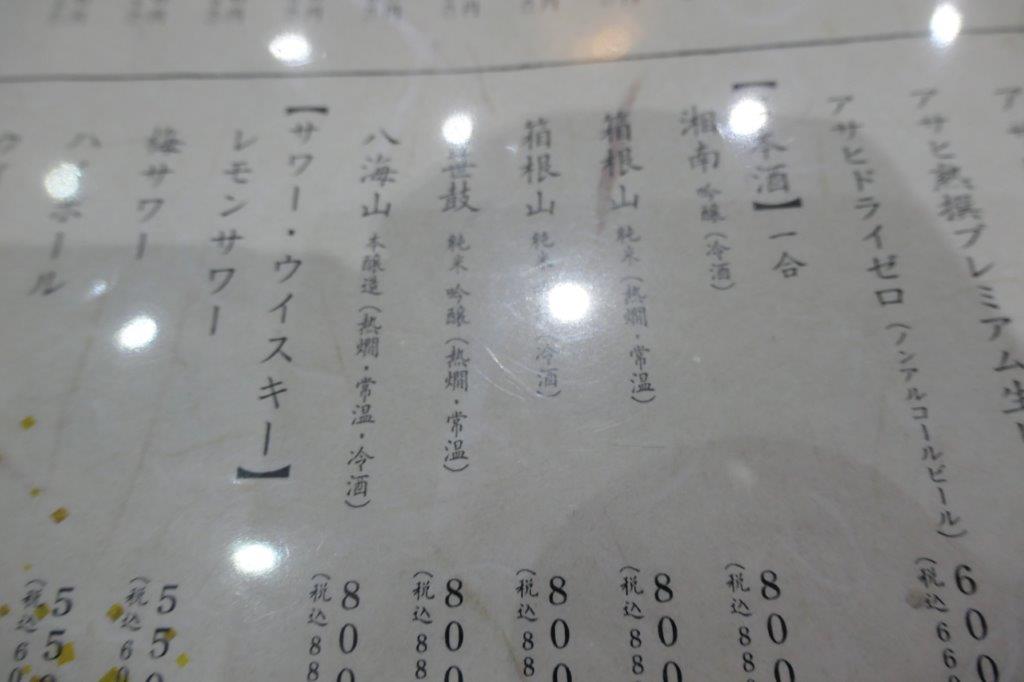 アサヒ熟撰プレミアム生
アサヒドライゼロ（ノンアルコールビール） 600
（税込66
【日本酒】一合
湘南 吟醸（冷酒） 800
（税込88
箱根山 純米（熱燗・常温） 800
（税込88
箱根山 純米（冷酒） 800
（税込88
笹鼓 純米吟醸（熱燗・常温） 800
（税込88
八海山 本醸造（熱燗・常温・冷酒） 800
（税込88
【サワー・ウイスキー】
レモンサワー 55
（税込60
梅サワー 55
（税込60
ハイボール